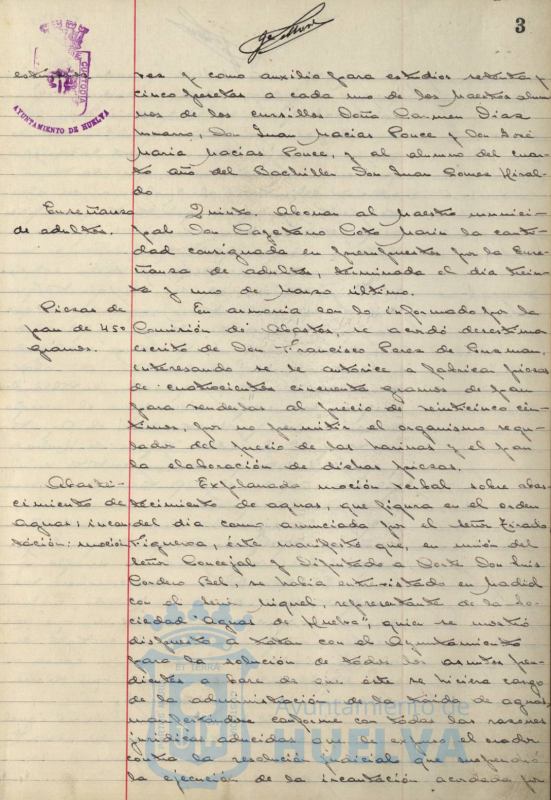 3
CUSTODIA
AYUNTAMIENTO DE HUELVA
res y como auxilio para estudios setenta y
cinco pesetas a cada uno de los Maestros alum
nos de los cursillos Doña Carmen Diaz
Navarro, Don Juan Macias Ponce y Don José
Maria Macias Ponce, y al alumno del cuar
to año del Bachiller Don Juan Gomez Hiral
do
Enseñanza
de adultos.
Quinto. Abonar al Maestro munici
pal Don Cayetano Coto Marin la canti
dad consignada en presupuestos por la Ense
ñanza de adultos, terminada el dia trein
ta y uno de Marzo último.
Piezas de
pan de 450
gramos.
En armonia con lo informado por la
Comisión de Abastos, se acordó desestimar
escrito de Don Francisco Perez de Guzman,
interesando se le autorice a fabricar piezas
de cuatrocientos cincuenta gramos de pan
para venderlas al precio de veinticinco cén
timos, por no permitir el organismo regu
lador del precio de las harinas y el pan
la elaboración de dichas piezas.
Abaste-
cimiento de
aguas; incau
tación: moción
Explanada moción verbal sobre abas
tecimiento de aguas, que figura en el orden
del dia como anunciada por el señor Tirado
Figueroa, éste manifestó que, en unión del
señor Concejal y Diputado a Cortes Don Luis
Cordero Bel, se habia entrevistado en Madrid
con el señor Miquel, representante de la So
ciedad "Aguas de Huelva", quien se mostró
dispuesto a tratar con el Ayuntamiento
para la solución de todos los asuntos pen
dientes a base de que éste se hiciera cargo
de la administración de la traida de aguas,
manifestándose conforme con todas las razones
juridicas aducidas que se
contra la resolución judicial que suspendió
la ejecución de la incautación acordada por
Ayuntamiento de
HUELVA